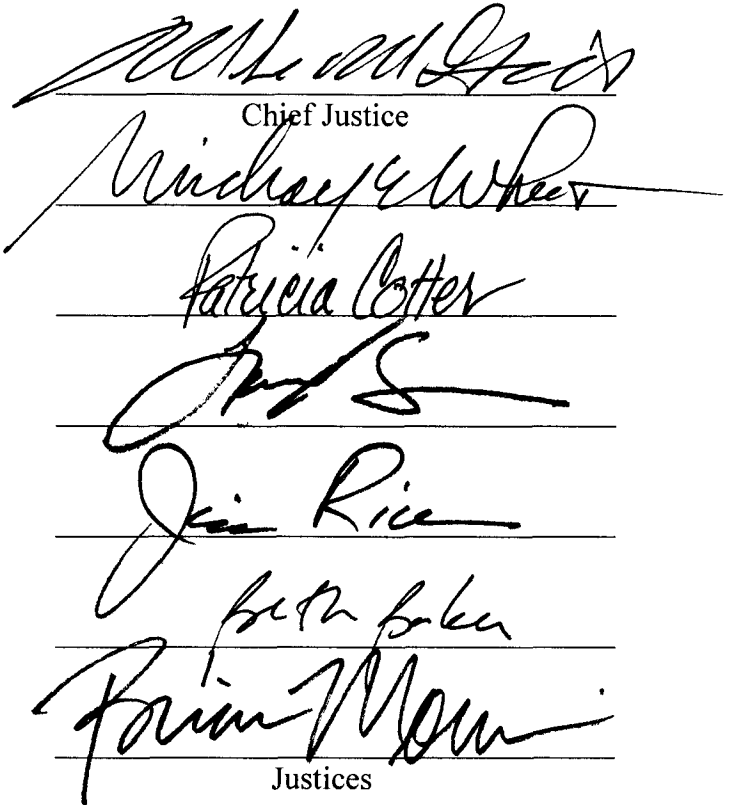 Mike McGrath
Chief Justice
Michael E Wheat
Patricia Cotter
Jim Rice
Beth Baker
Brian Morris
Justices